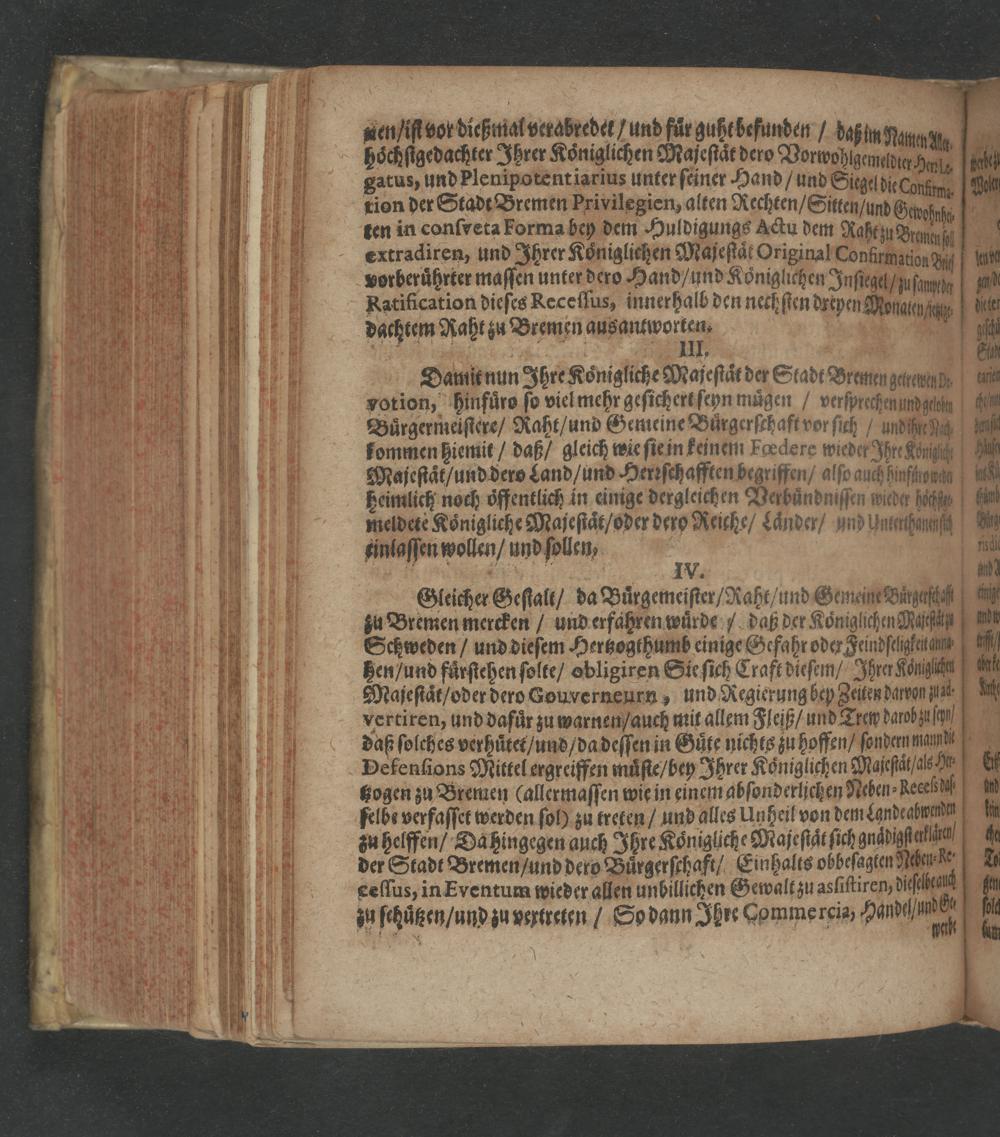 nen/ist vor dießmal verabredet / und für guht befunden / daß im Namen Aller-
höchstgedachter Ihrer Königlichen Majestät dero Vorwohlgemeldter Herr Le-
gatus, und Plenipotentiarius unter seiner Hand / und Siegel die Confirma-
tion der Stadt Bremen Privilegien, alten Rechten/Sitten/und Gewohnhei-
ten in consveta Forma bey dem Huldigungs Actu dem Raht zu Bremen soll
extradiren, und Ihrer Königlichen Majestät Original Confirmation Brief
vorberührter massen unter dero Hand/und Königlichen Insiegel/zu sampt der
Ratification dieses Recessus, innerhalb den nechsten dreyen Monaten/jetztge-
dachtem Raht zu Bremen ausantworten.
III.
Damit nun Ihre Königliche Majestät der Stadt Bremen getrewen De-
votion, hinfüro so viel mehr gesichert seyn mügen / versprechen und geloben
Bürgermeistere/ Raht/und Gemeine Bürgerschaft vor sich / und ihre Nach-
kommen hiemit / daß/ gleich wie sie in keinem Fœdere wieder Ihre Königliche
Majestät/und dero Land/und Herrschafften begriffen/ also auch hinfüro weder
heimlich noch öffentlich in einige dergleichen Verbündnissen wieder höchstge-
meldete Königliche Majestät/oder dero Reiche/ Länder/ und Unterthanen sich
einlassen wollen/ und sollen.
IV.
Gleicher Gestalt/ da Bürgemeister/Raht/und Gemeine Bürgerschafft
zu Bremen mercken / und erfahren würde / daß der Königlichen Majestät zu
Schweden / und diesem Hertzogthumb einige Gefahr oder Feindseligkeit anna-
hen/und fürstehen solte/ obligiren Sie sich Craft diesem/ Ihrer Königlichen
Majestät/oder dero Gouverneurn, und Regierung bey Zeiten darvon zu ad-
vertiren, und dafür zu warnen/auch mit allem Fleiß/ und Trew darob zu seyn/
daß solches verhütet/und/da dessen in Güte nichts zu hoffen/ sondern mann die
Defensions Mittel ergreiffen müste/bey Ihrer Königlichen Majestät/als Her-
tzogen zu Bremen (allermassen wie in einem absonderlichen Neben-Recess das-
selbe verfasset werden sol) zu treten / und alles Unheil von dem Lande abwenden
zu helffen/ Da hingegen auch Ihre Königliche Majestät sich gnädigst erklären/
der Stadt Bremen/und dero Bürgerschaft/ Einhalts obbesagten Neben-Re-
cessus, in Eventum wieder allen unbillichen Gewalt zu assistiren, dieselbe auch
zu schützen/und zu vertreten / So dann Ihre Commercia, Handel/und Ge-
werbe